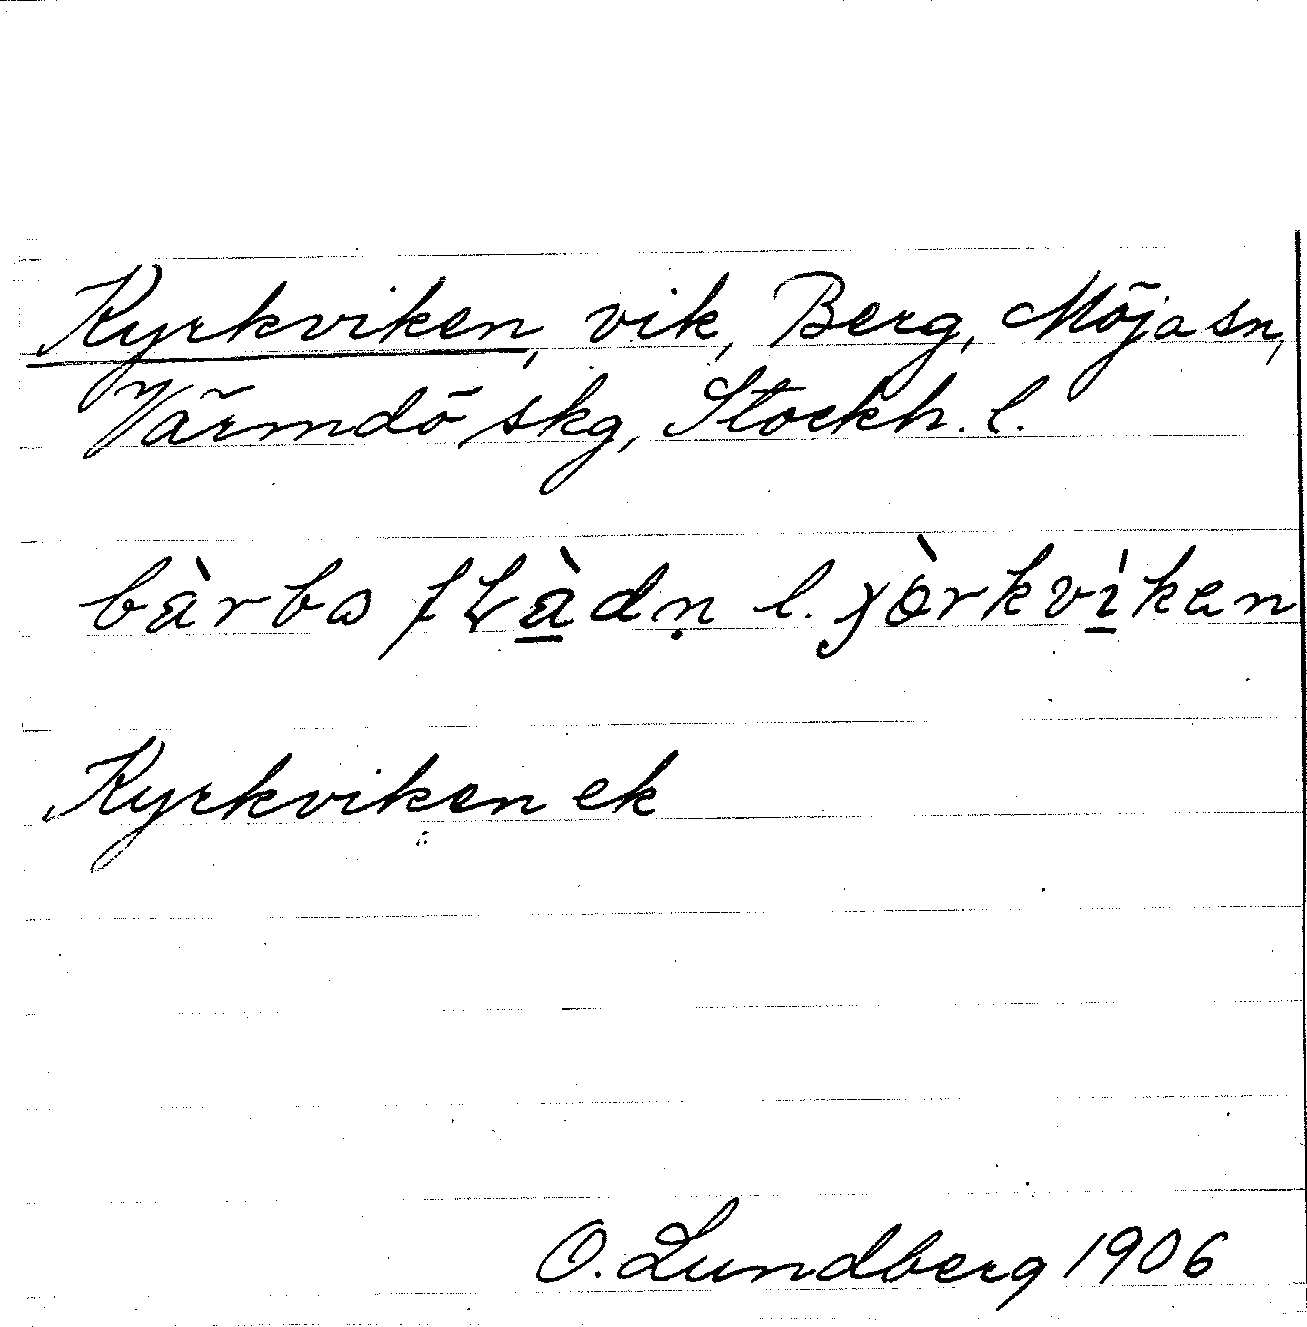 Kyrkviken, vik, Berg, Möja sn,
Värmdö skg, Stockh. l.
bàrbo l. kvìken
Kyrkviken ek
O. Lundberg 1906